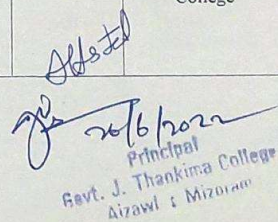 College
Attested
26/6/2022
Principal
Govt. J. Thankima College
Aizawl : Mizoram